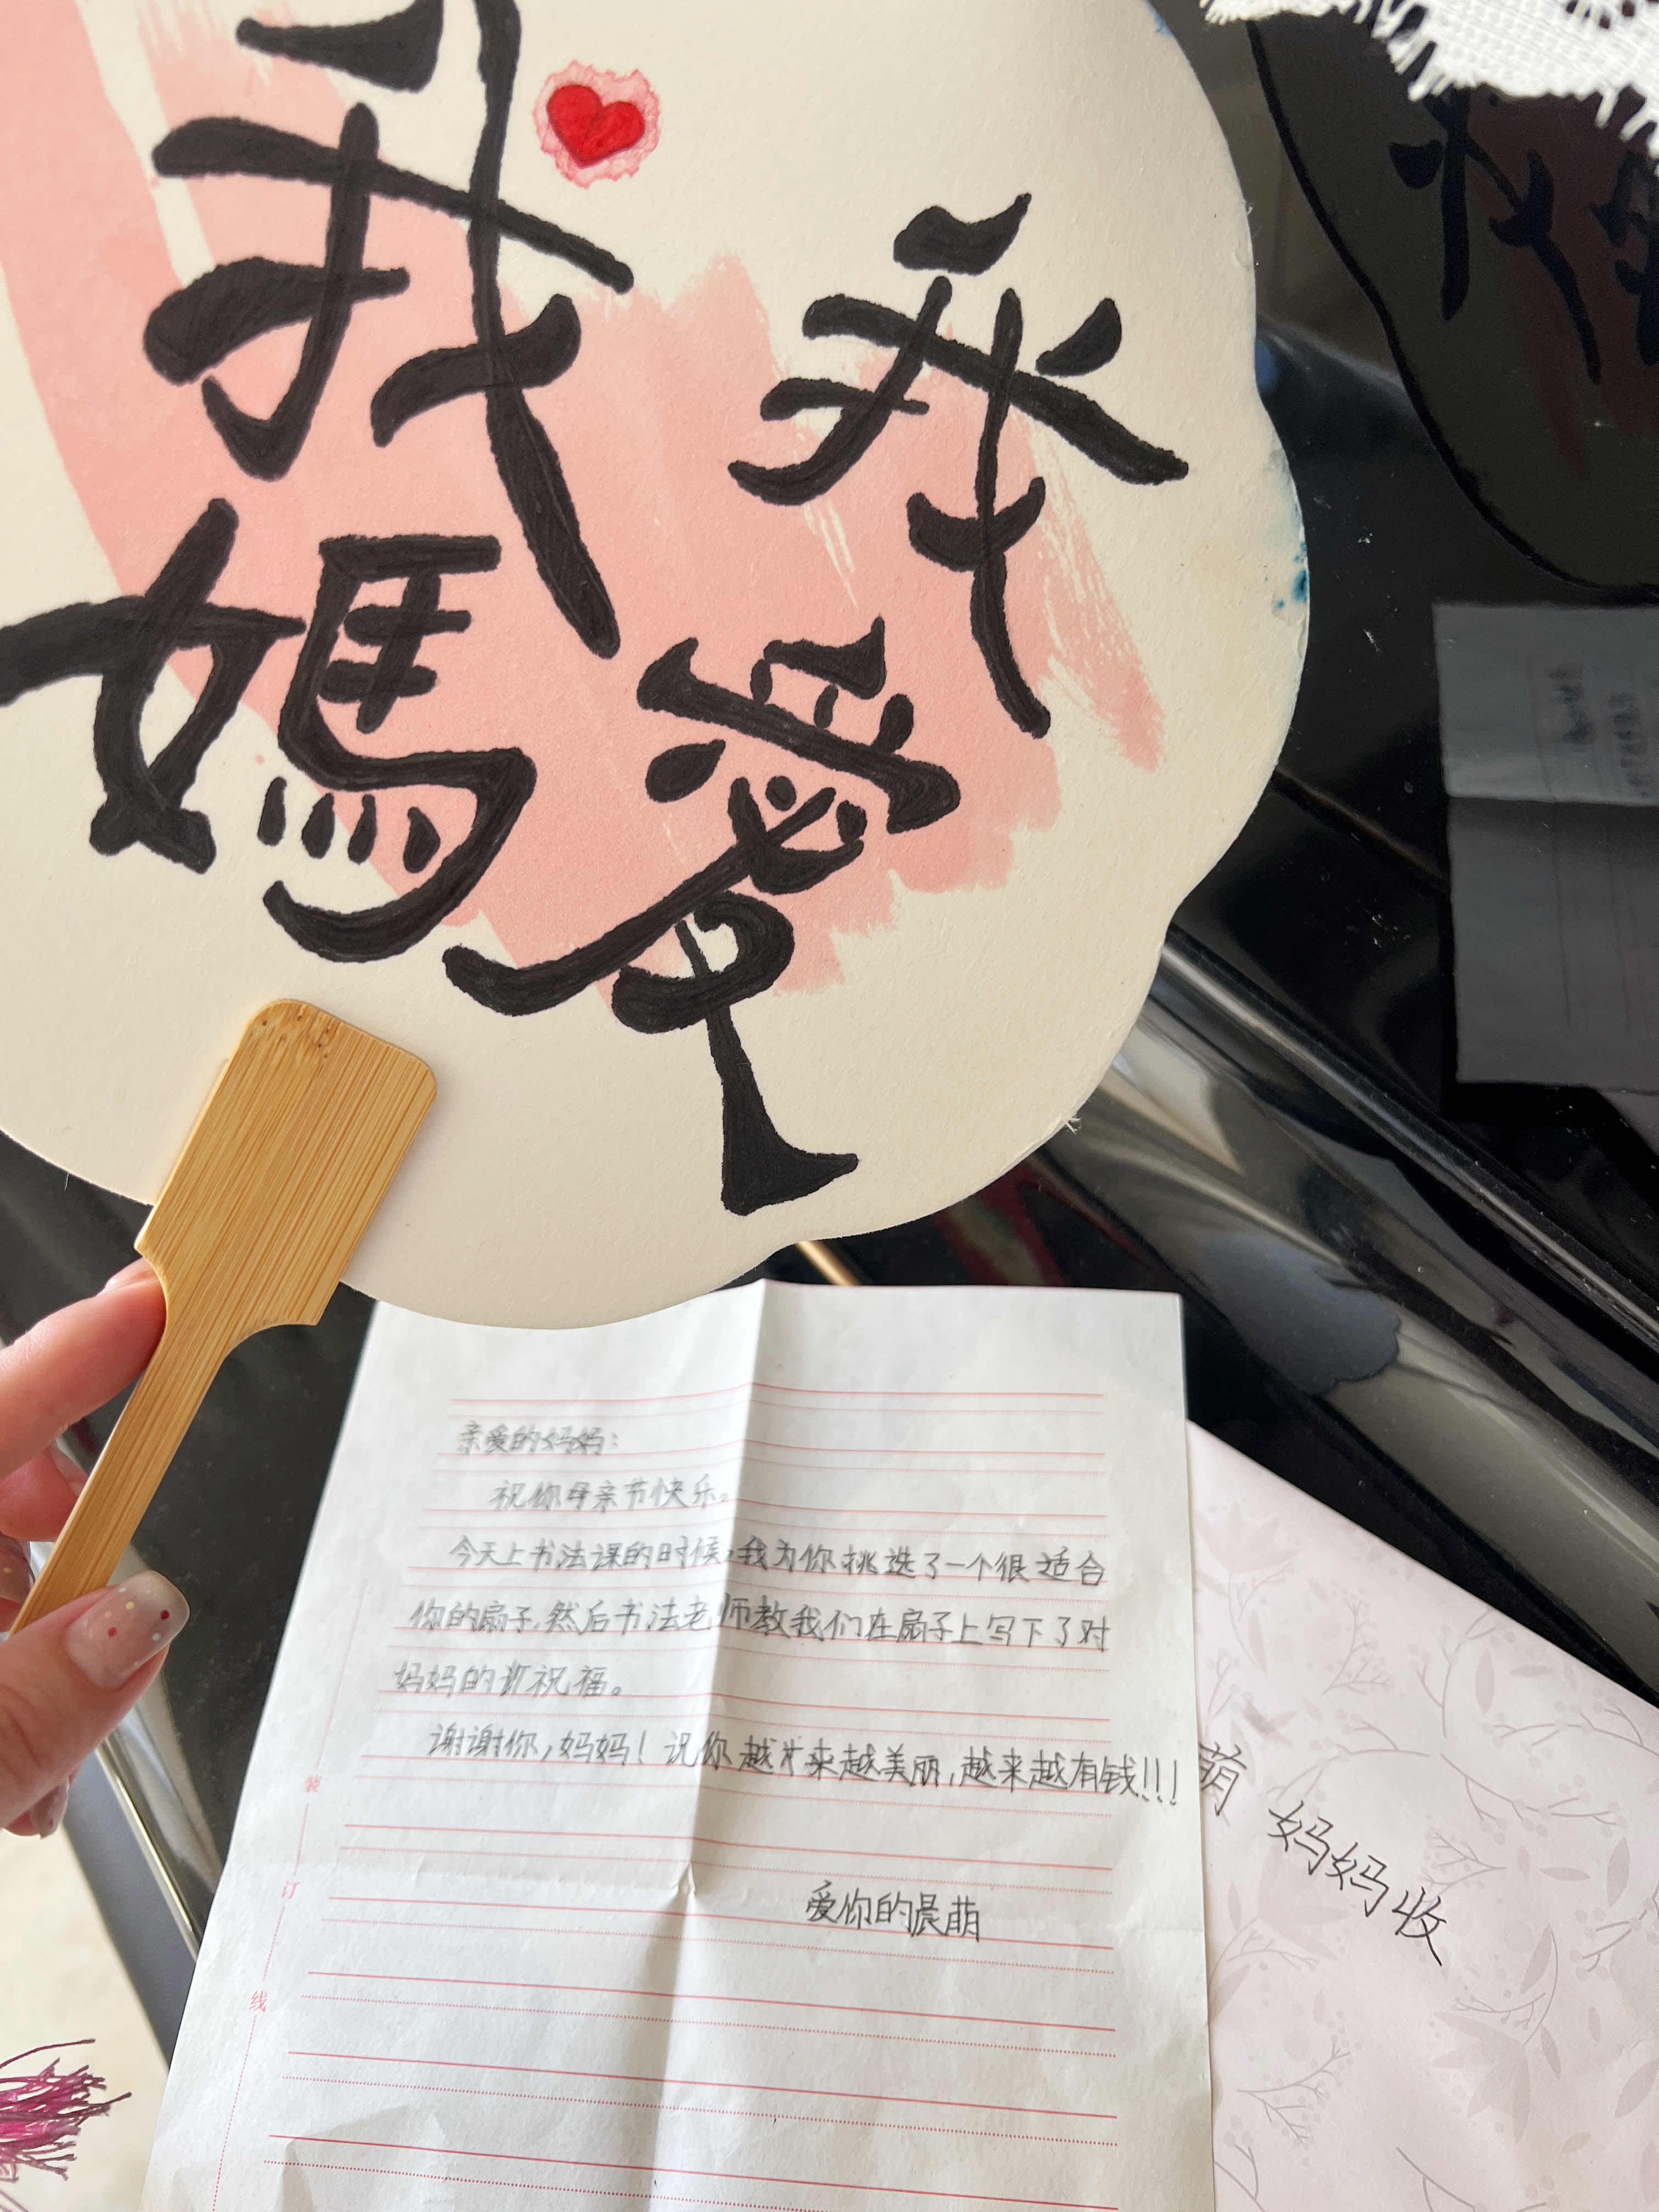 我愛
我媽
亲爱的妈妈：
祝你母亲节快乐。
今天上书法课的时候，我为你挑选了一个很适合
你的扇子，然后书法老师教我们在扇子上写下了对
妈妈的祝福。
谢谢你，妈妈！祝你越来越美丽，越来越有钱！！！
爱你的晨萌
萌 妈妈收
装
订
线